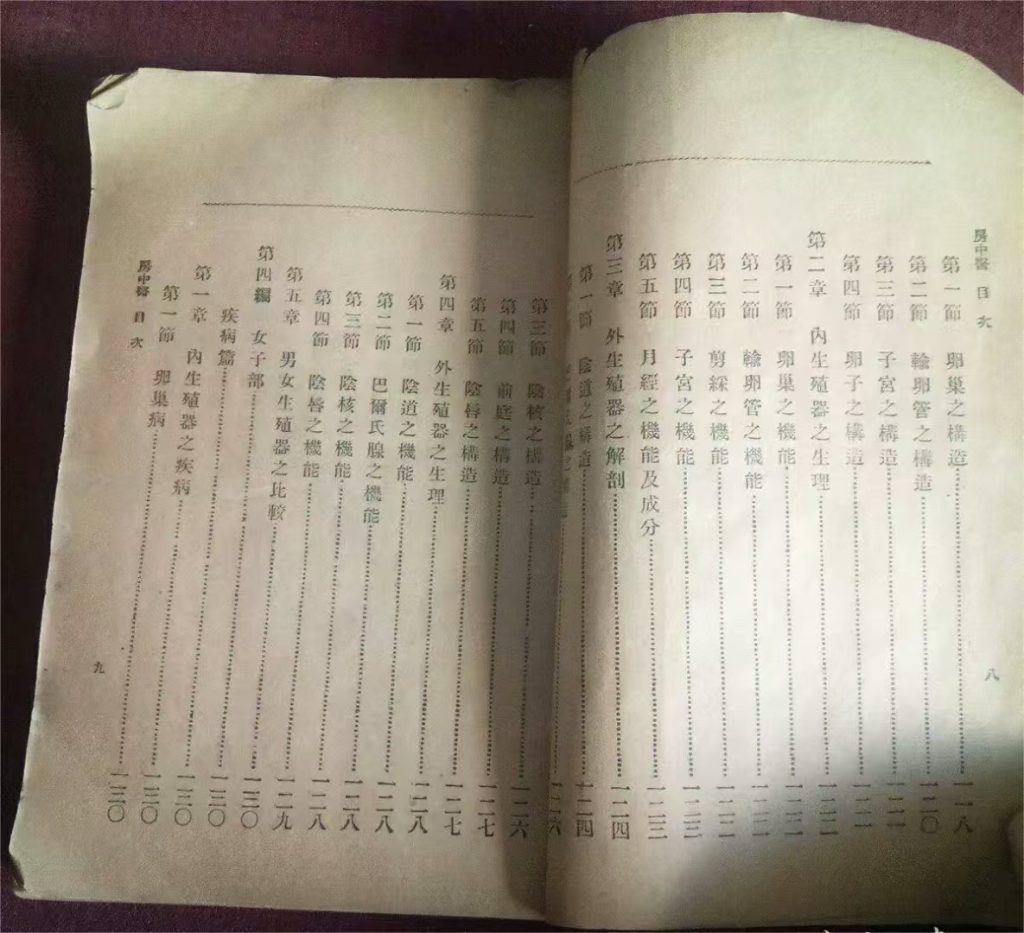 房中醫 目次
第一節 卵巢之構造…一一八
第二節 輸卵管之構造…一二〇
第三節 子宮之構造…一二一
第四節 卵子之構造…一二一
第二章 內生殖器之生理…一二二
第一節 卵巢之機能…一二二
第二節 輸卵管之機能…一二二
第三節 剪綵之機能…一二二
第四節 子宮之機能…一二三
第五節 月經之機能及成分…一二三
第三章 外生殖器之解剖…一二四
第一節 陰道之構造…一二四
八
第三節 陰核之構造…一二六
第四節 前庭之構造…一二七
第五節 陰唇之構造…一二七
第四章 外生殖器之生理…一二七
第一節 陰道之機能…一二八
第二節 巴爾氏腺之機能…一二八
第三節 陰核之機能…一二八
第四節 陰唇之機能…一二八
第五章 男女生殖器之比較…一二九
第四編 女子部…一三〇
疾病篇…一三〇
第一章 內生殖器之疾病…一三〇
第一節 卵巢病…一三〇
房中醫 目次
九